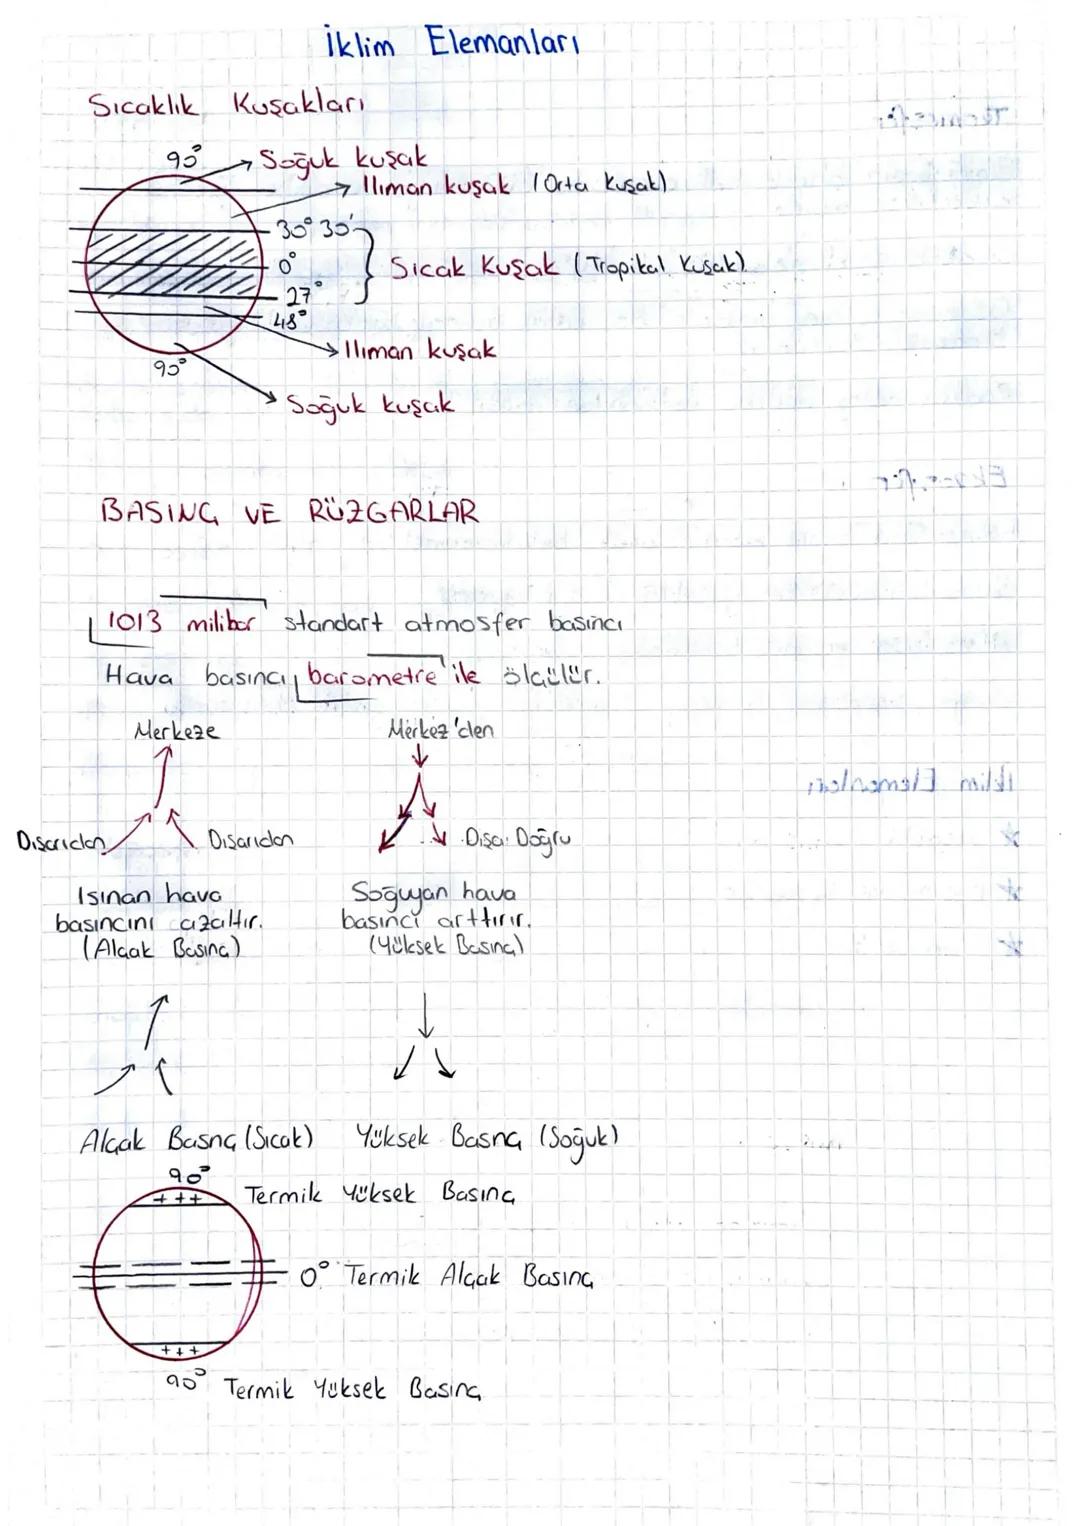 İklim Elemanları
Sıcaklık Kuşakları
90°
Soğuk kuşak
Ilıman kuşak (Orta Kuşak)
30° 30'
0°
Sıcak Kuşak (Tropikal Kuşak)
27°
48°
Ilıman kuşak
90°
Soğuk kuşak
BASINÇ VE RÜZGARLAR
1013 milibar standart atmosfer basıncı
Hava basıncı barometre ile ölçülür.
Merkeze Merkez'den
Dışarıdan Dışarıdan Dışa Doğru
Isınan hava
basıncını azaltır.
(Alçak Basınç)
Soğuyan hava
basıncı arttırır.
(Yüksek Basınç)
Alçak Basnç (Sıcak) Yüksek Basnç (Soğuk)
90°
+++ Termik Yüksek Basınç
0° Termik Alçak Basınç
+++
90° Termik Yüksek Basınç